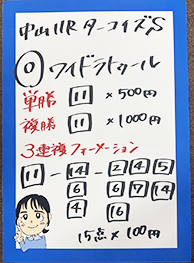 中山11R ターコイズS
◎ ワイドラトゥール
単勝 11 × 500円
複勝 11 × 1000円
3連複フォーメーション
11 - 14 - 2 4 5
6 6 7 14
4 16
15点 × 100円